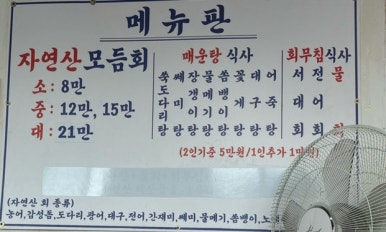 메뉴판
자연산 모듬회
소 : 8만
중 : 12만, 15만
대 : 21만
매운탕 식사
쑥 쎄 장 물 쏨 꽃 대 어
도 갱 메 뱅
다 미 이 기 이 게 구 죽
리
탕 탕 탕 탕 탕 탕 탕 탕
회무침식사
서 전 물
대 어
회 회 회
(2인기준 5만원/1인추가 1만원)
(자연산 회 종류)
농어,감성돔,도다리,광어,대구,전어,간재미,쎄미,물메기,쏨뱅이,노